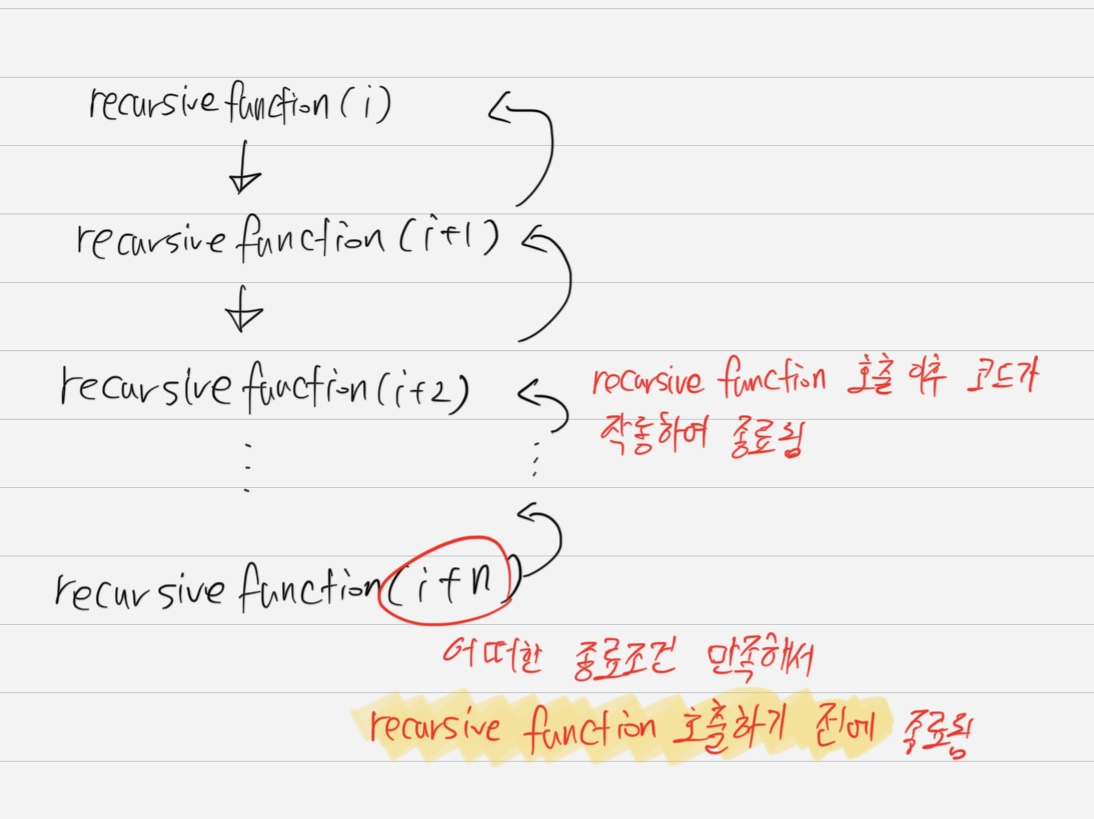 recursive function (i)
recursive function (i+1)
recursive function (i+2)
recursive function 호출 이후 코드가
작동하여 종료됨
recursive function (i+n)
어떠한 종료조건 만족해서
recursive function 호출하기 전에 종료됨